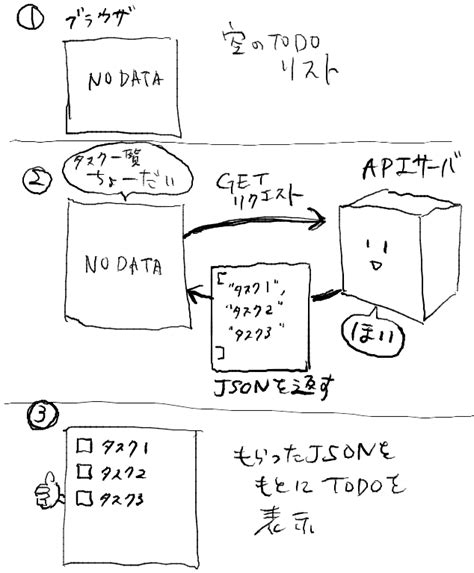 ①
ブラウザ
NO DATA
空のTODO
リスト
②
タスク一覧
ちょーだい
NO DATA
GET
リクエスト
APIサーバ
[
"タスク1",
"タスク2"
"タスク3"
]
ほい
JSONを返す
③
タスク1
タスク2
タスク3
もらったJSONを
もとにTODOを
表示